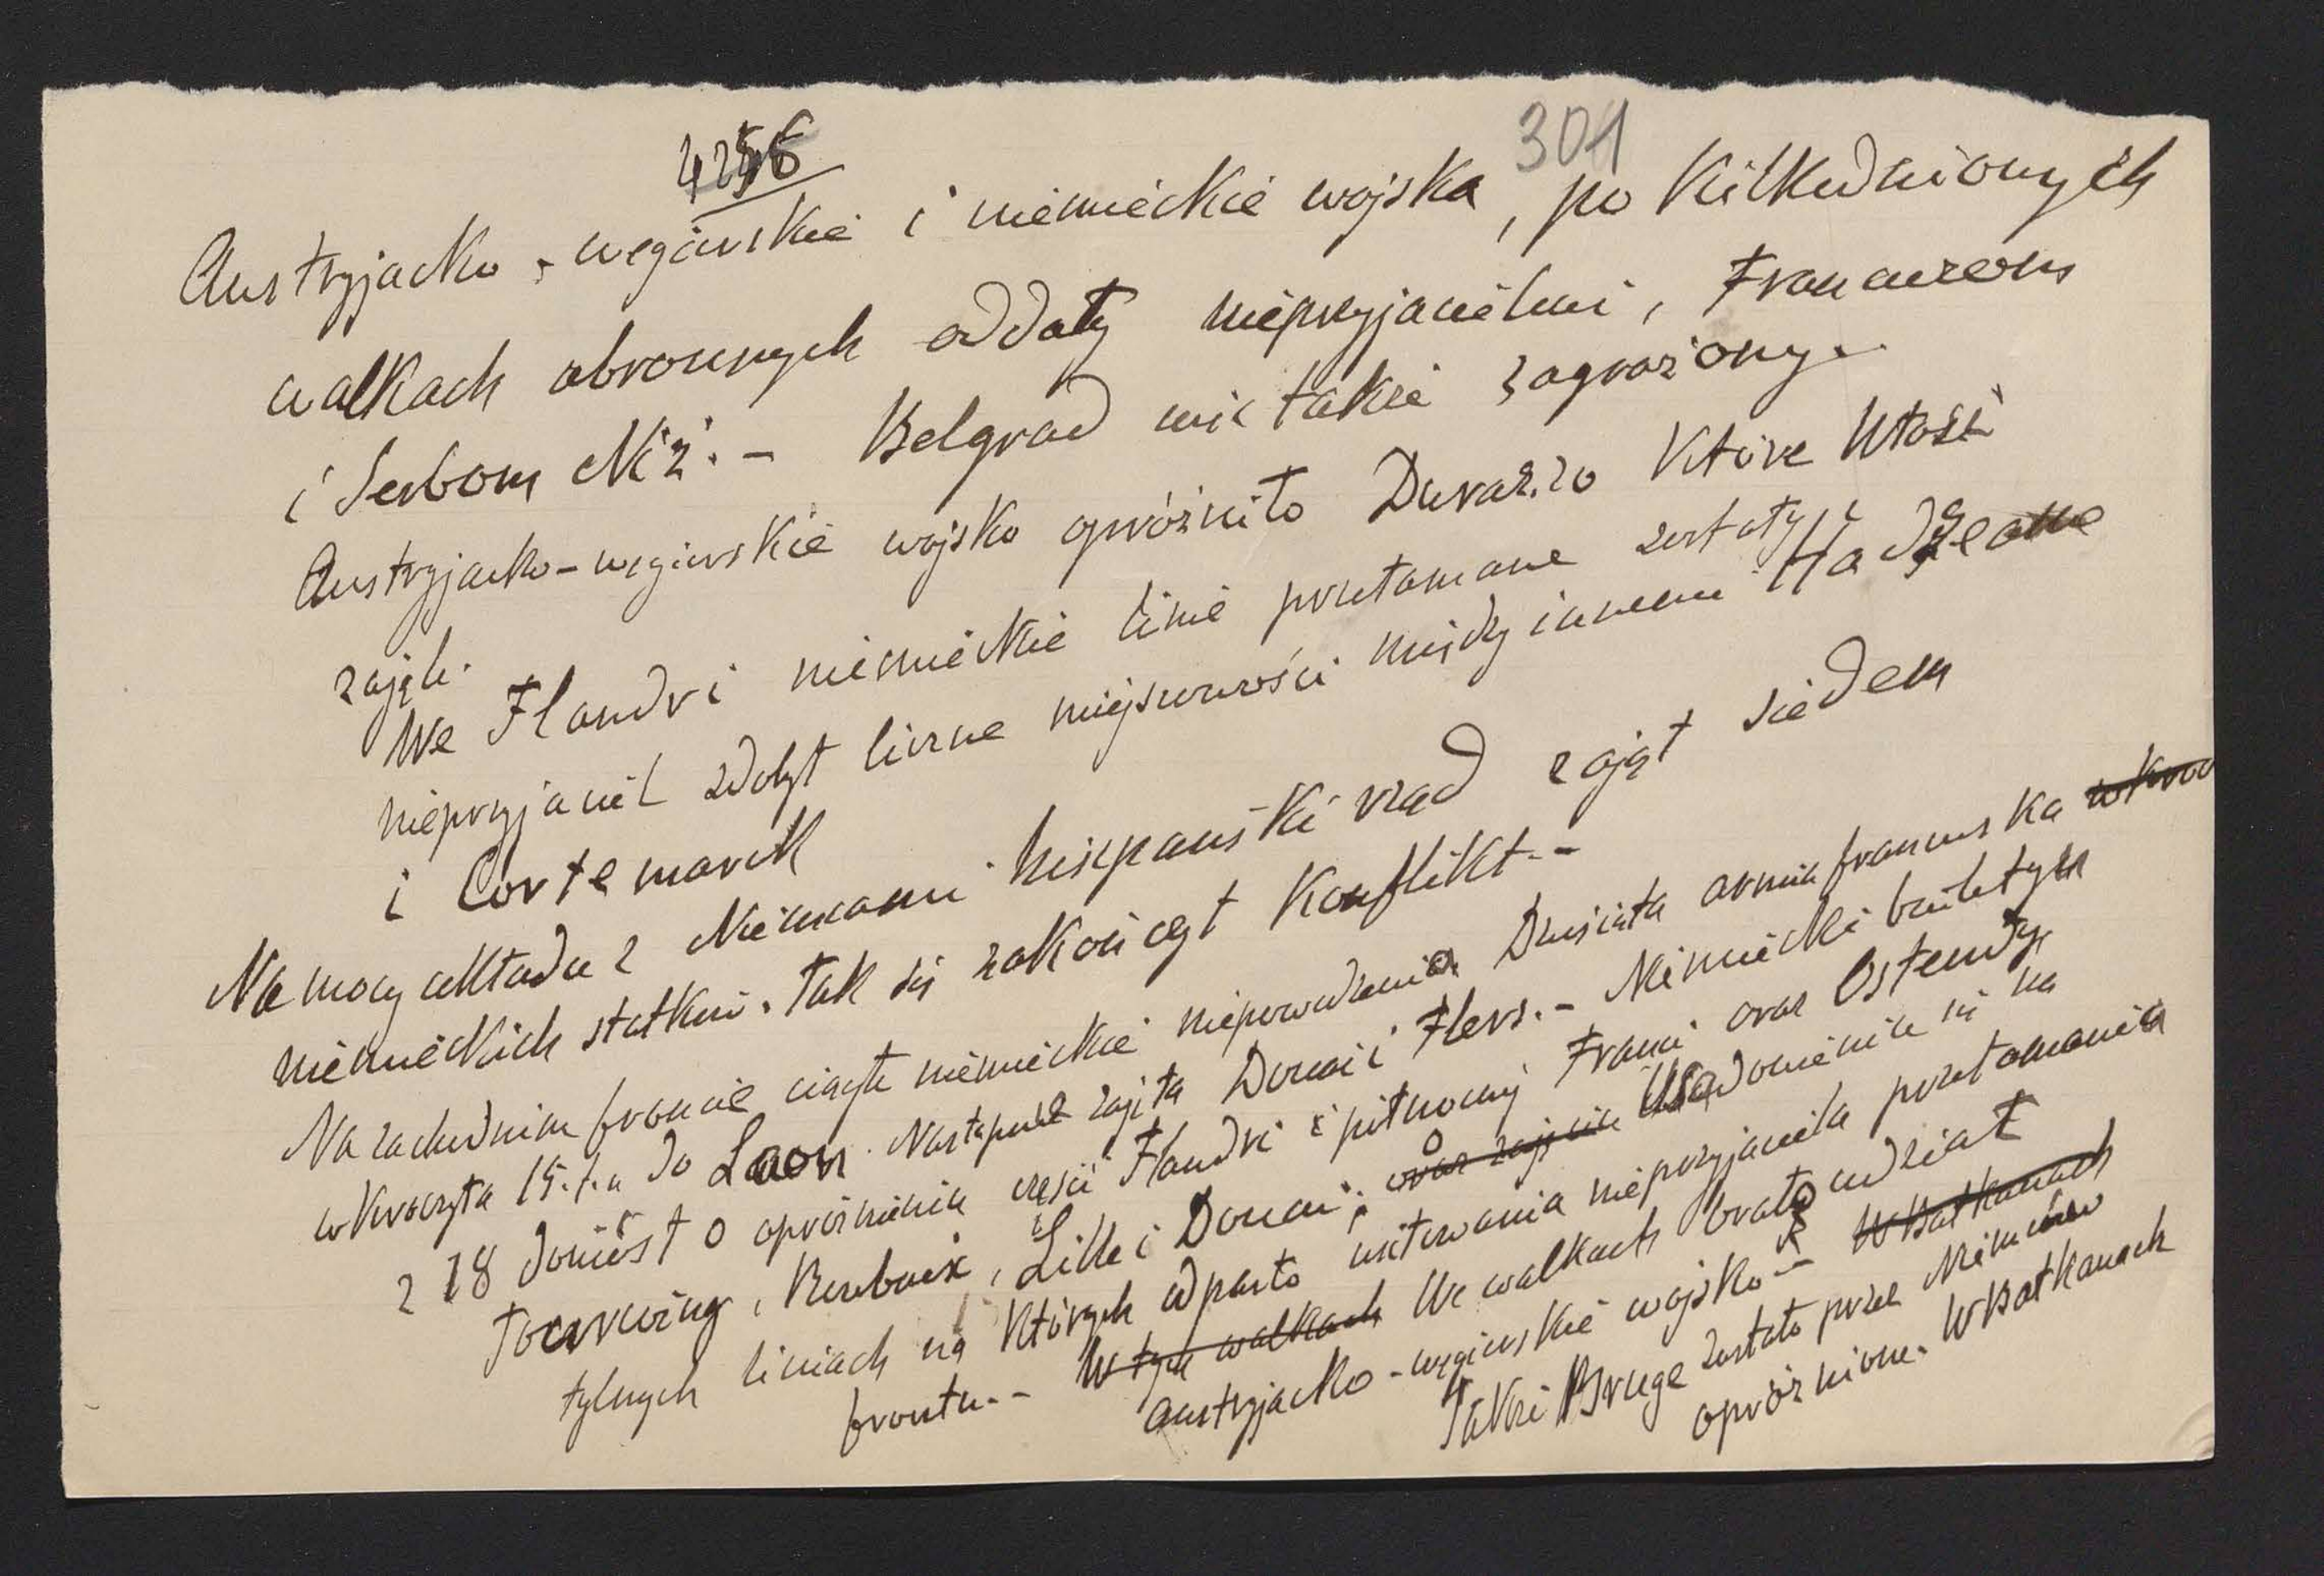 4256
301
Austryjacko-węgierskie i niemieckie wojska, po kilkudniowych
walkach obronnych oddały nieprzyjacielowi, Francuzom
i Serbom Niż. - Belgrad więc także zagrożony.
Austryjacko-węgierskie wojsko opróżniło Durazzo które Włosi
zajęli.
We Flandri niemieckie linie przełamane zostały i
nieprzyjaciel zdobył liczne miejscowości między innemi Hadzeame
i Cortemarck
Na mocy układu z Niemcami hiszpański rząd zajął siedem
niemieckich statków. Tak się zakończył konflikt. -
Na zachodnim froncie ciągłe niemieckie niepowodzenia Dziesiąta armia francuska wkroc
wkroczyła 15.t.m do Laon. Następnie zajęta Douai i Flers. - Niemiecki biuletyn
z 18 doniósł o opróżnieniu części Flandri i północnej Francji oraz Ostendy,
Tourcoing, Roubaix, Lille i Douai; oraz zajęciu Usadowienia się na
tylnych liniach na których odparto usiłowania nieprzyjaciela przełamania
frontu. - W tych walkach We walkach brało udział
austryjacko-węgierskie wojsko - W Bałkanach
Także Bruge zostało przez Niemców
opróżnione. W Bałkanach